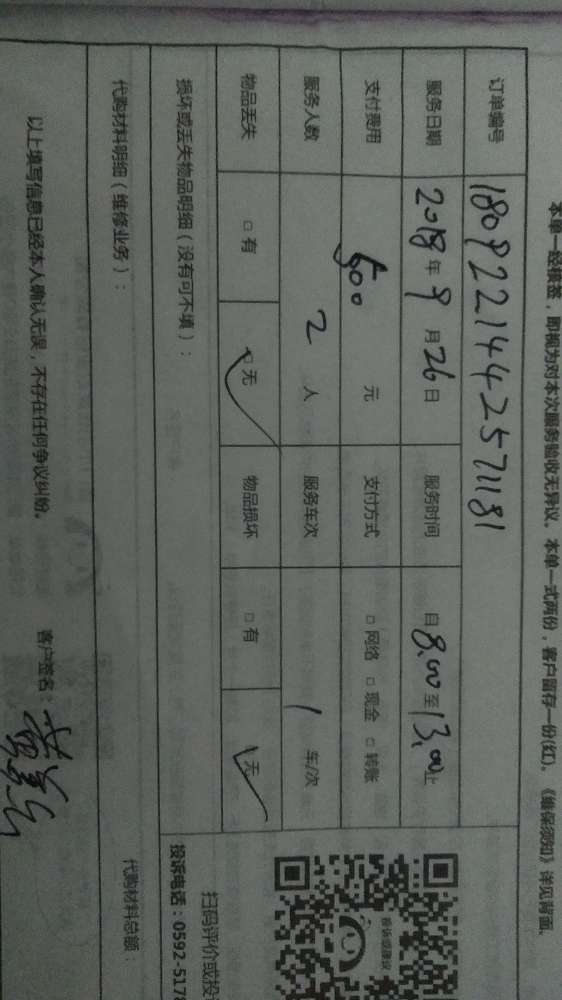 本单一经核签，即视为对本次服务验收无异议。本单一式两份，客户留存一份(红)。《维保须知》详见背面。
订单编号 1809221442571181
服务日期 2018年9月26日 服务时间 自8.00至13.00止
支付费用 500元 支付方式 □ 网络 □ 现金 □ 转账
服务人数 2人 服务车次 1车/次
物品丢失 □ 有 □ 无 物品损坏 □ 有 □ 无
损坏或丢失物品明细（没有可不填）：
扫码评价或投
投诉电话：0592-5178
投诉或建议
代购材料明细（维修业务）： 代购材料总额：
以上填写信息已经本人确认无误，不存在任何争议纠纷。 客户签名：